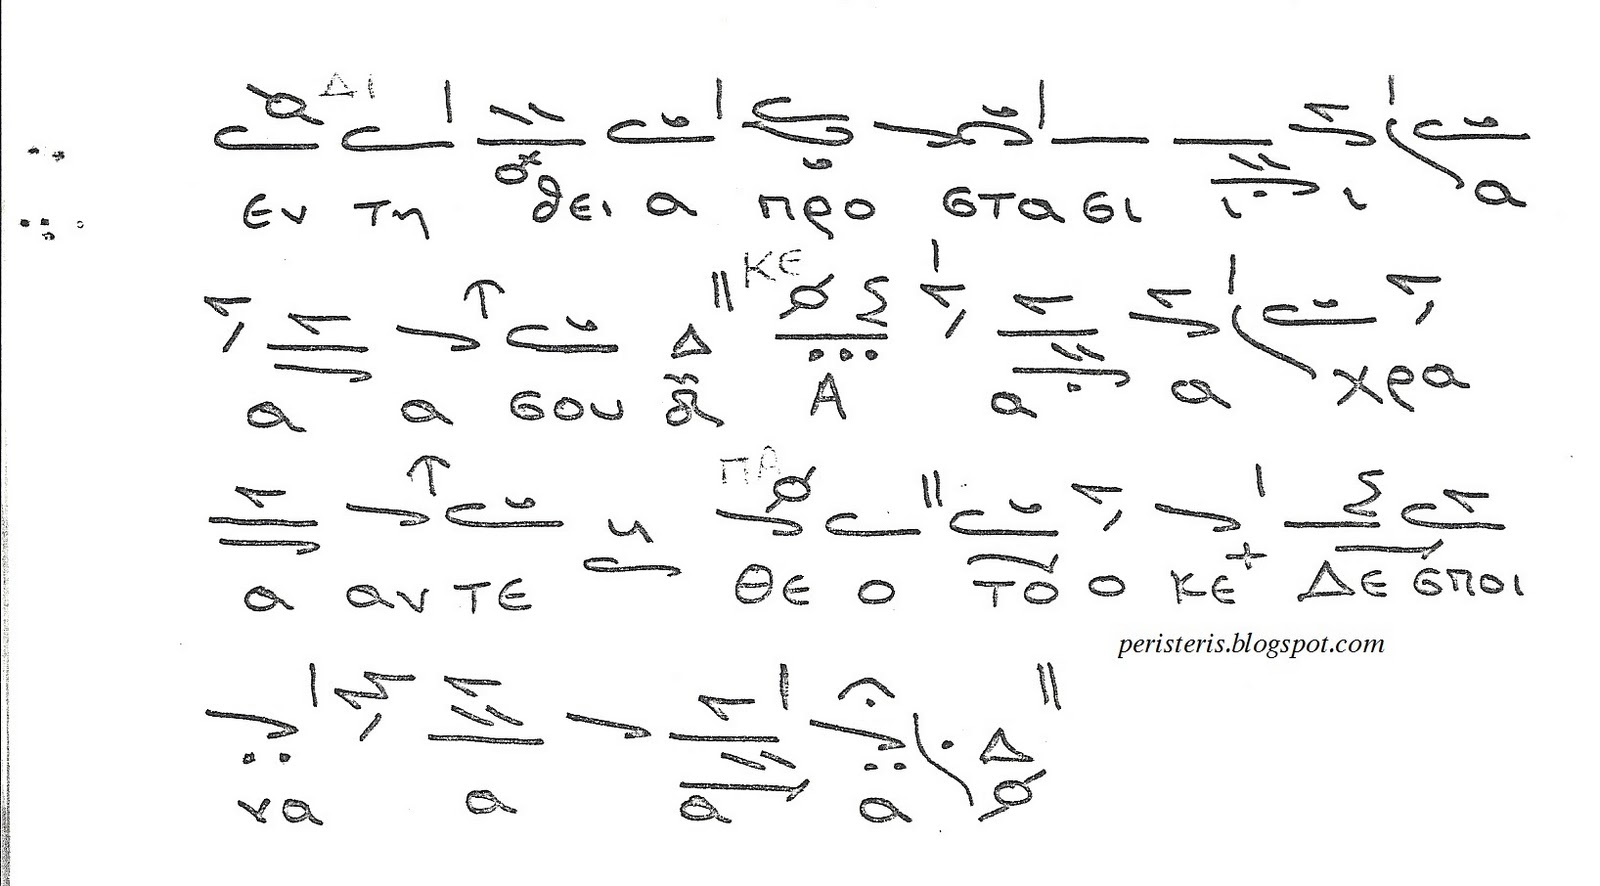 ΔΙ
εν τη θει α προ στα σι ι ι α
ΚΕ
α α σου Δ Α α α χρα
ΠΑ
α αν τε θε ο το ο κε Δε σποι
peristeris.blogspot.com
να α α α Δ